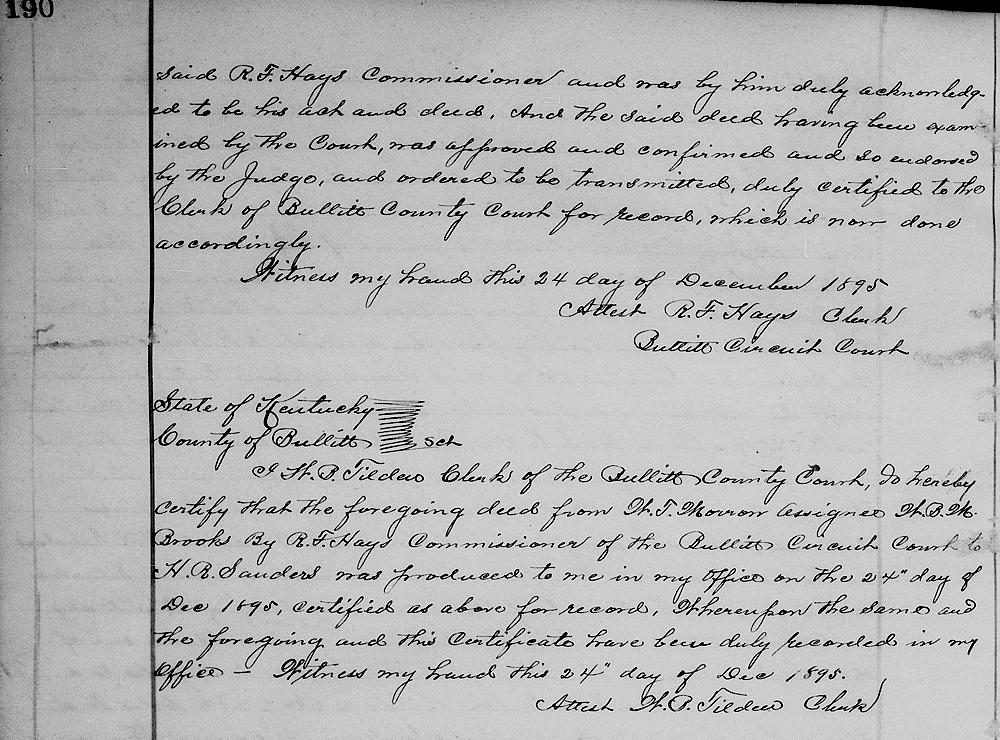 190
said R. F. Hays Commissioner and was by him duly acknowledg-
ed to be his act and deed. And the said deed having been exam-
ined by the Court, was approved and confirmed and so endorsed
by the Judge, and ordered to be transmitted, duly certified to the
Clerk of Bullitt County Court for record, which is now done
accordingly.
Witness my hand this 24 day of December 1895
Attest R. F. Hays Clerk
Bullitt Circuit Court
State of Kentucky
County of Bullitt Sct
I W. P. Tilden Clerk of the Bullitt County Court, do hereby
certify that the foregoing deed from W. T. Morrow assignee W. B. M.
Brooks By R. F. Hays Commissioner of the Bullitt Circuit Court to
H. R. Sanders was produced to me in my office on the 24" day of
Dec 1895, certified as above for record, Whereupon the same and
the foregoing and this certificate have been duly recorded in my
office — Witness my hand this 24" day of Dec 1895.
Attest W. P. Tilden Clerk